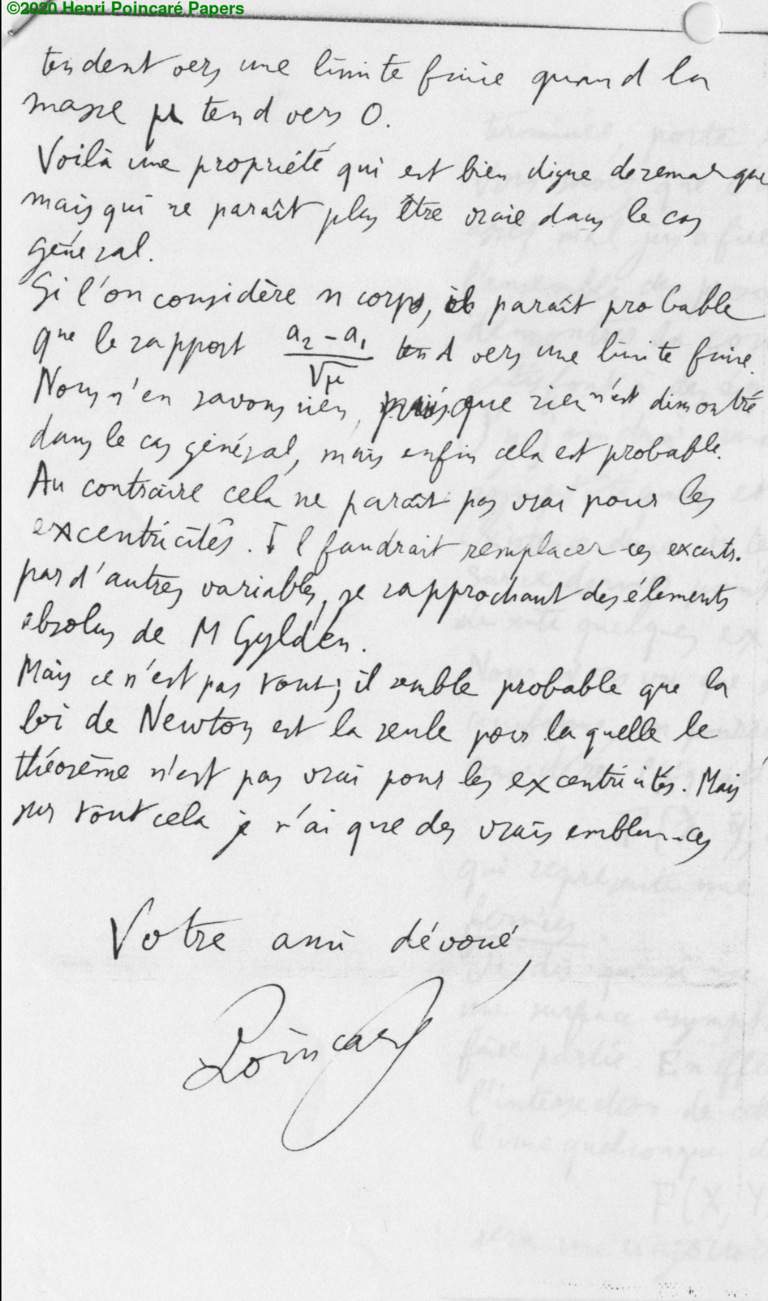 ©2020 Henri Poincaré Papers
tendent vers une limite finie quand la
masse μ tend vers 0.
Voilà une propriété qui est bien digne de remarque
mais qui ne paraît plus être vraie dans le cas
général.
Si l'on considère n corps, il paraît probable
que le rapport (a₂ - a₁)/√μ tend vers une limite finie.
Nous n'en savons rien, puisque rien n'est dimontré
dans le cas général, mais enfin cela est probable.
Au contraire cela ne paraît pas vrai pour les
excentricités. Il faudrait remplacer ces excents.
par d'autres variables, se rapprochant des élements
absolus de M Gylden.
Mais ce n'est pas tout; il semble probable que la
loi de Newton est la seule pour laquelle le
théorème n'est pas vrai pour les excentricités. Mais
sur tout cela je n'ai que des vraisemblances
Votre ami dévoué,
Poincaré